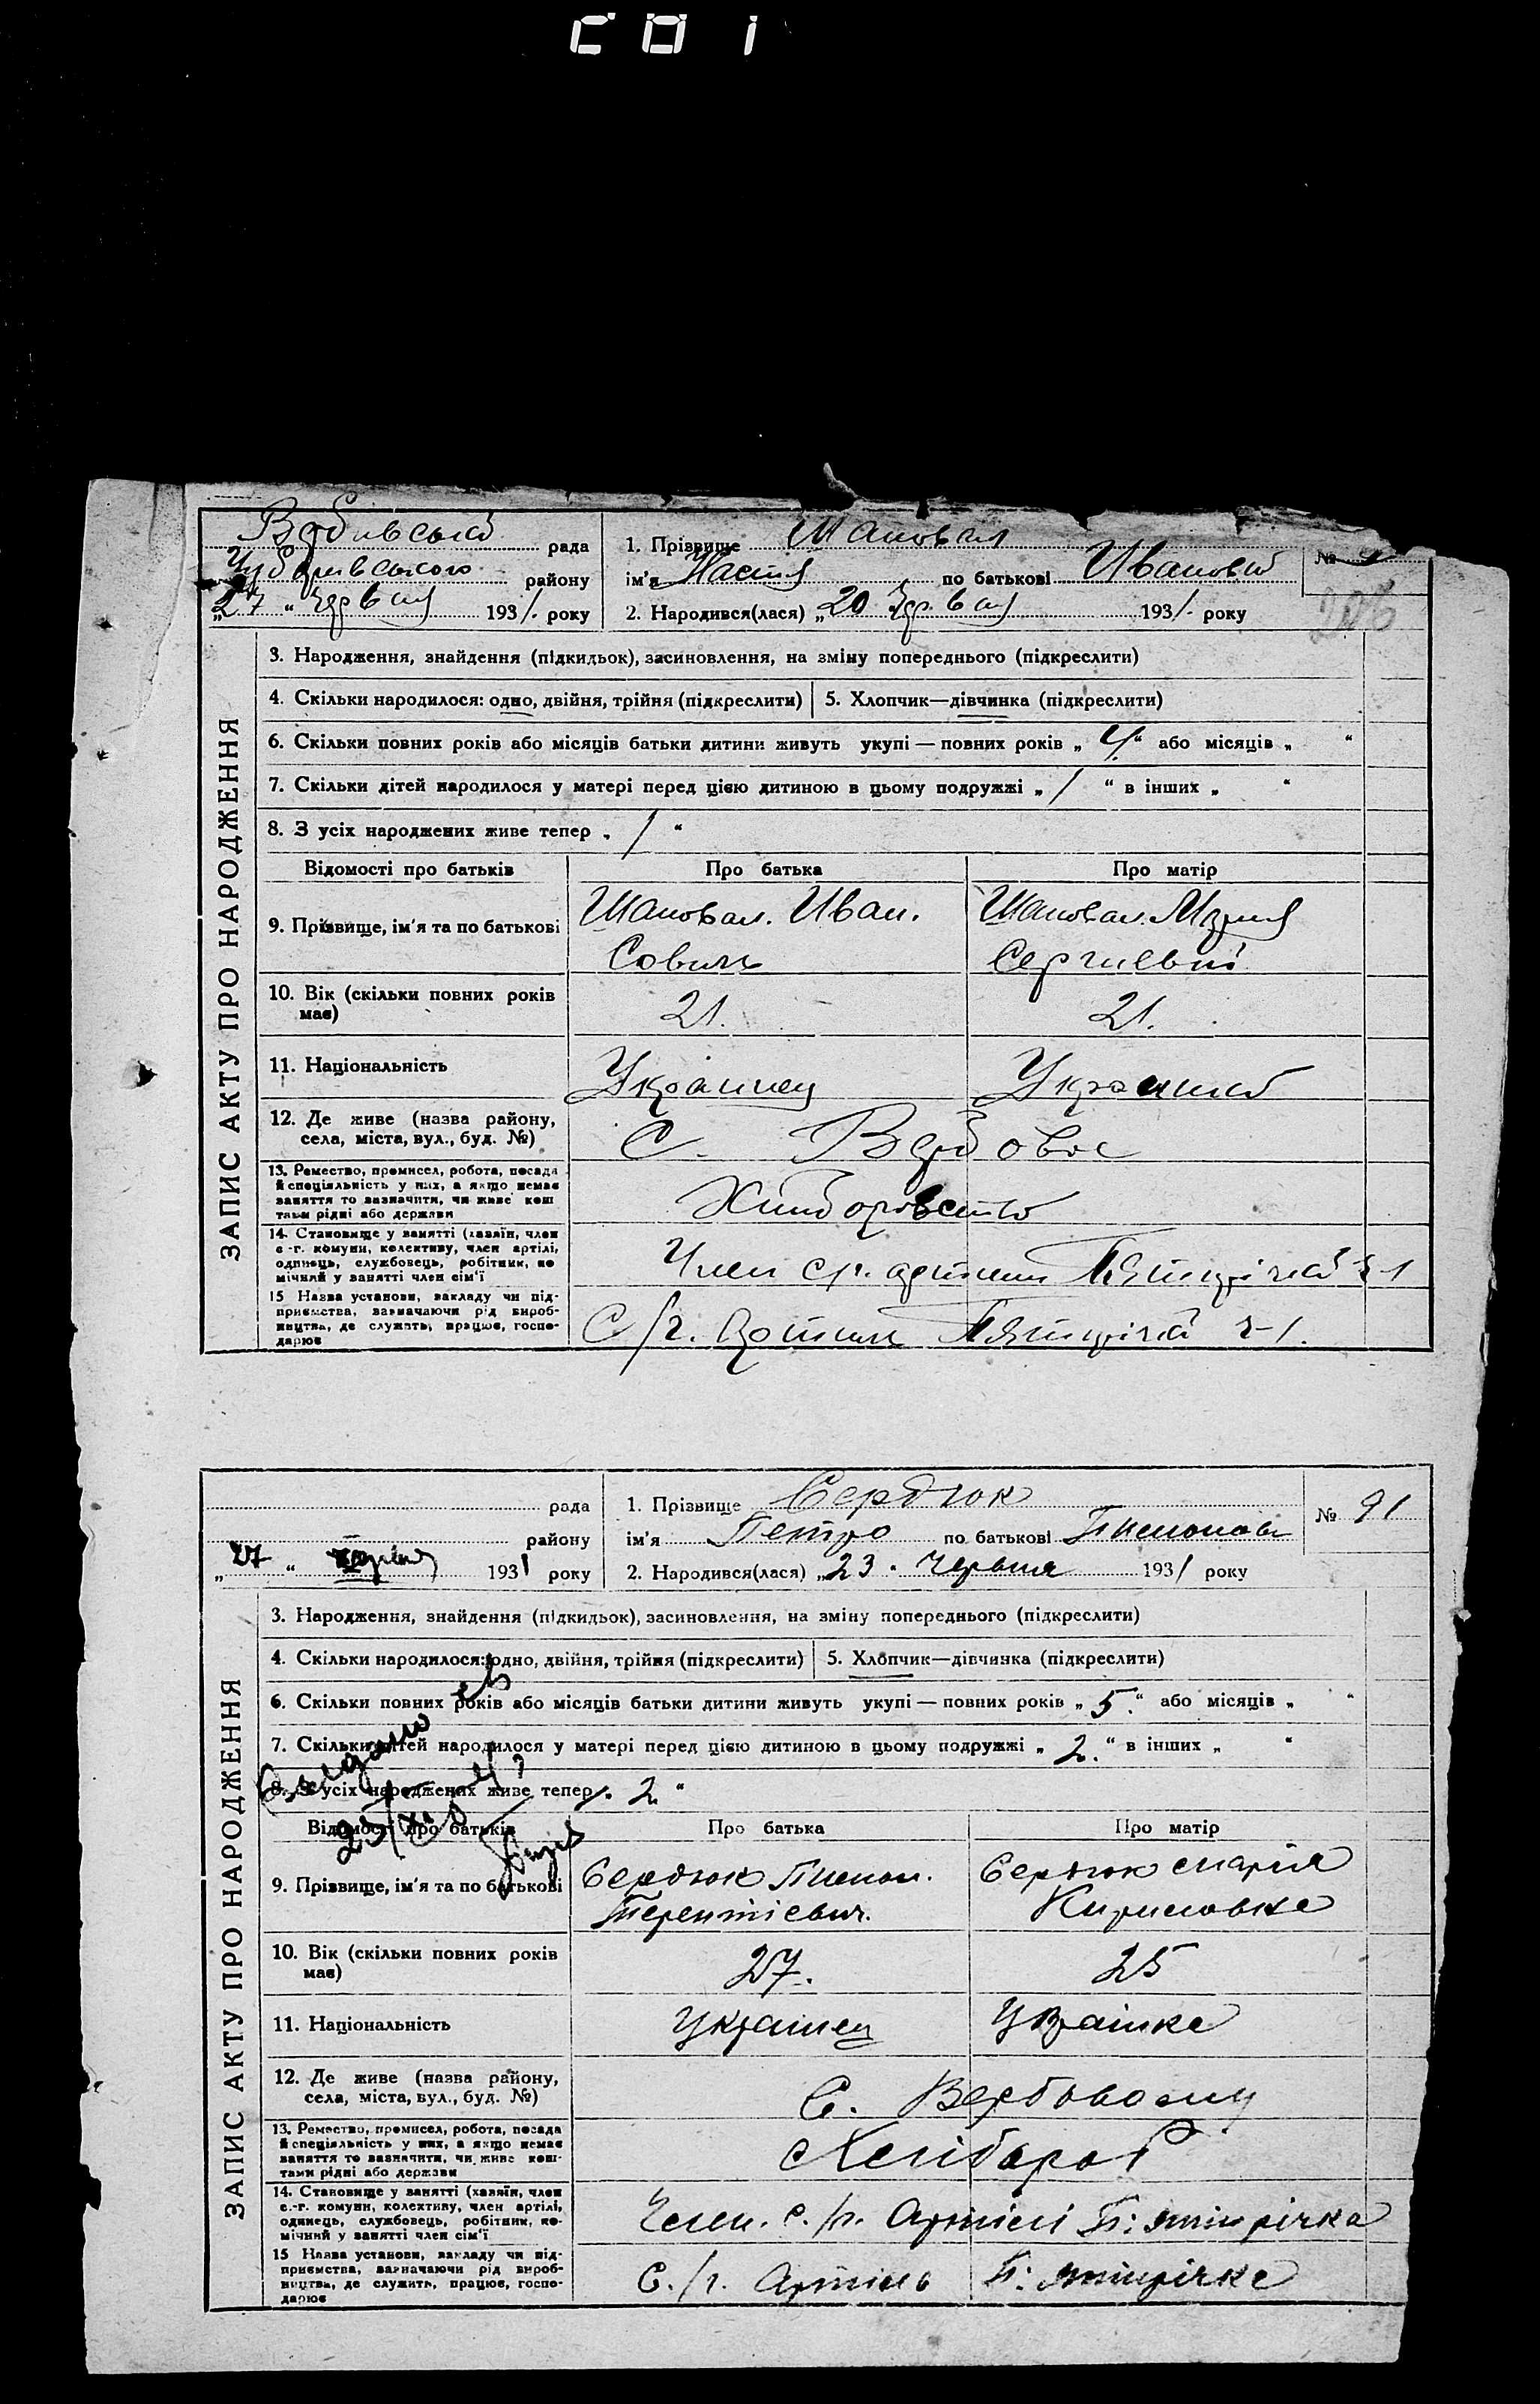 Вербівська рада
Чубарівського району
„27“ Червня 1931. року
1. Прізвище Шаповал
ім'я Настя по батькові Ивановна
2. Народився(лася) „20 Червня 1931. року
№
206
ЗАПИС АКТУ ПРО НАРОДЖЕННЯ
3. Народження, знайдення (підкидьок), засиновлення, на зміну попереднього (підкреслити)
4. Скільки народилося: одно, двійня, трійня (підкреслити) 5. Хлопчик—дівчинка (підкреслити)
6. Скільки повних років або місяців батьки дитини живуть укупі — повних років „ 4.“ або місяців „ “
7. Скільки дітей народилося у матері перед цією дитиною в цьому подружжі „ 1 “ в інших „ “
8. З усіх народжених живе тепер „ 1 “
Відомості про батьків Про батька Про матір
9. Прізвище, ім'я та по батькові Шаповал. Иван. Шаповал. Мария
Сович Сергиевна
10. Вік (скільки повних років має) 21. 21.
11. Національність Украинец Украинка
12. Де живе (назва району, села, міста, вул., буд. №) С. Вербове
13. Ремество, промисел, робота, посада й спеціяльність у них, а якщо немає заняття то визначити, чи живе коштами рідні або держави Хлиборобство
14. Становище у занятті (хазяїн, член с.-г. комуни, колективу, член артілі, одинець, службовець, робітник, помічний у занятті член сім'ї Член с/г. артили Пятирічка ч-1
15 Назва установи, закладу чи підприємства, зазначаючи рід виробництва, де служить, працює, господарює С/г. Артиль Пятирічка ч-1.
рада
району
„27“ червня 1931 року
1. Прізвище Сердюк
ім'я Петро по батькові Пименови
2. Народився(лася) „23. Червня 1931 року
№ 91
ЗАПИС АКТУ ПРО НАРОДЖЕННЯ
3. Народження, знайдення (підкидьок), засиновлення, на зміну попереднього (підкреслити)
4. Скільки народилося: одно, двійня, трійня (підкреслити) 5. Хлопчик—дівчинка (підкреслити)
6. Скільки повних років або місяців батьки дитини живуть укупі — повних років „ 5.“ або місяців „ “
7. Скільки дітей народилося у матері перед цією дитиною в цьому подружжі „ 2.“ в інших „ “
8. З усіх народжених живе тепер „ 2 “
Відомості про батьків Про батька Про матір
9. Прізвище, ім'я та по батькові Сердюк Пимон. Сердюк Марія
Терентіевич. Кириловна
10. Вік (скільки повних років має) 27. 25
11. Національність Украинец Украінка
12. Де живе (назва району, села, міста, вул., буд. №) С. Вербовому
13. Ремество, промисел, робота, посада й спеціяльність у них, а якщо немає заняття то визначити, чи живе коштами рідні або держави Хлібороб
14. Становище у занятті (хазяїн, член с.-г. комуни, колективу, член артілі, одинець, службовець, робітник, помічний у занятті член сім'ї Член. с./г. Артілі П: ятирічка
15 Назва установи, закладу чи підприємства, зазначаючи рід виробництва, де служить, працює, господарює С./г. Артіль П: ятирічка